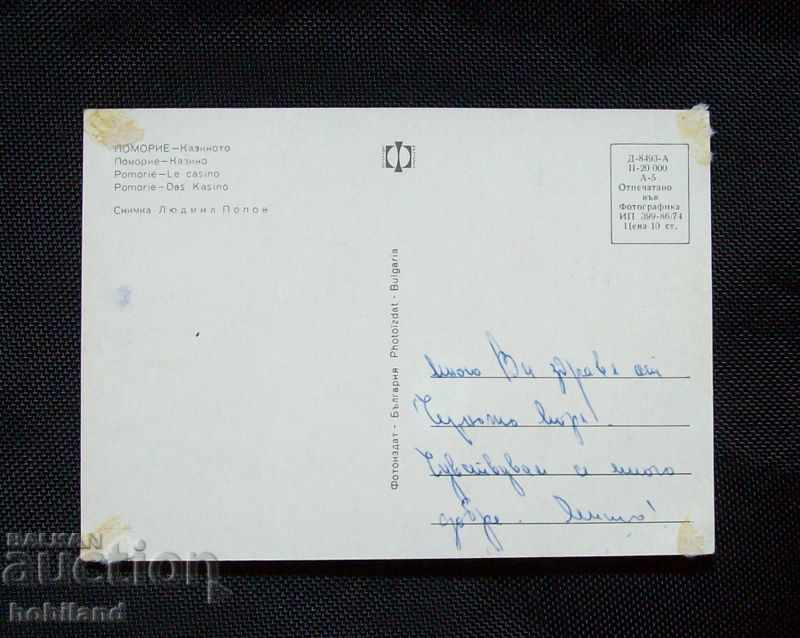 ПОМОРИЕ—Казиното
Поморие—Казино
Pomorié—Le casino
Pomorie—Das Kasino
Снимка Людмил Попов
Д-8493-А
II-20 000
А-5
Отпечатано
във
Фотографика
ИП 399-86/74
Цена 10 ст.
Фотоиздат - България Photoizdat - Bulgaria
много Ви здраве от
Черното море!
Чувствувам се много
добре.
BALKAN
auction
hobiland